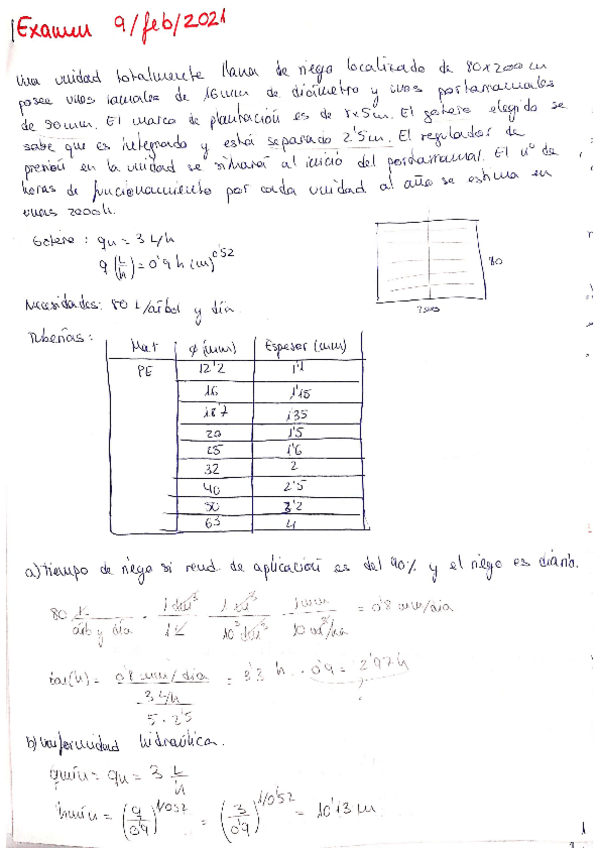 Examen 9/feb/2021
Una unidad totalmente llana de riego localizado de 80x200 m
posee unos ramales de 16mm de diámetro y unos portarramales
de 90mm. El marco de plantación es de 5m. El gotero elegido se
sabe que es integrado y está separado 2'5m. El regulador de
presión en la unidad se situará al inicio del portarramal. El nº de
horas de funcionamiento por cada unidad al año se estima en
unas 2000h.
Gotero: qn = 3 L/h
q (L/h) = 0'9 h (m)^0'52
80
Necesidades: 80 L/árbol y día
Tuberías:
Mat Ø (mm) Espesor (mm)
PE 12'2
16 1'15
18'7 1'35
20 1'5
25 1'6
32 2
40 2'5
50 3'2
63 4
a) tiempo de riego si rend. de aplicación es del 90% y el riego es diario.
80 L/árb y día · 1 dm³/1L · 1 m³/10³ dm³ · 1mm/10 m³/ha = 0'8 mm/día
(h) = 0'8 mm/día / 3 L/h / 5·2'5 = 3'3 h · 0'9 = 2'97 h
b) uniformidad hidráulica.
qmín = qn = 3 L/h
hmín = (q/0'9)^1/0'52 = (3/0'9)^1/0'52 = 10'13 m
1